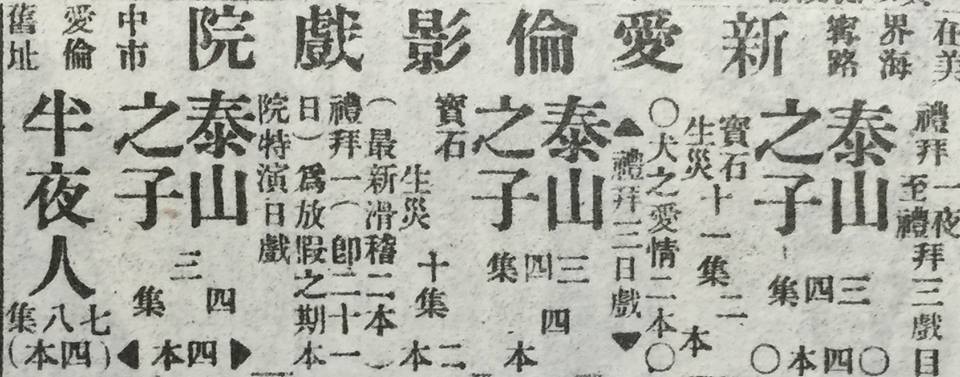 在美界海甯路
新愛倫影戲院
中市愛倫舊址
禮拜一夜至禮拜三戲目
泰山之子 三四集 ○四本○
寶石生災十一集二本
○犬之愛情二本○
▲禮拜三日戲▼
泰山之子 三四集 四本
寶石生災 十集 二本
(最新滑稽二本)
禮拜一(卽二十一日)爲放假之期本院特演日戲
泰山之子 三四集 ◀四本▶
半夜人 七八集(四本)